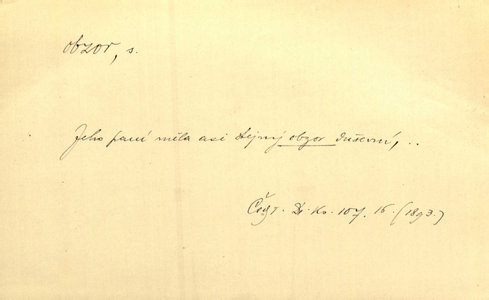 obzor, s.
Jeho paní měla asi stejný obzor duševní, ..
107, 16. (1893.)